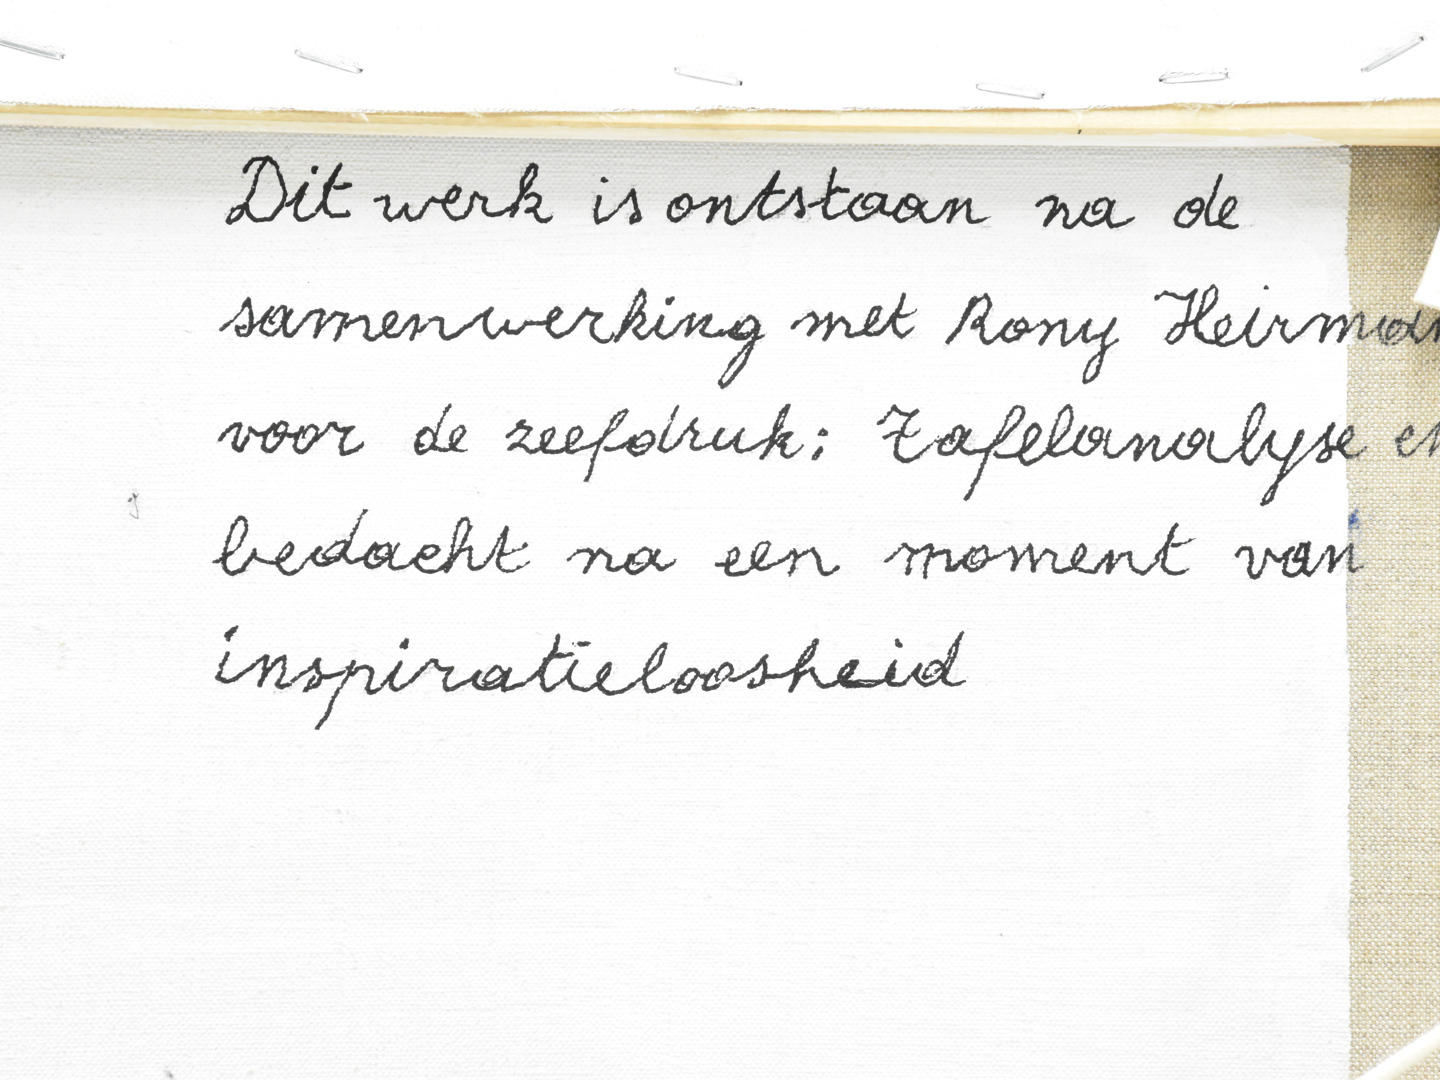 Dit werk is ontstaan na de
samenwerking met Rony Heirman
voor de zeefdruk: Tafelanalyse en
bedacht na een moment van
inspiratieloosheid